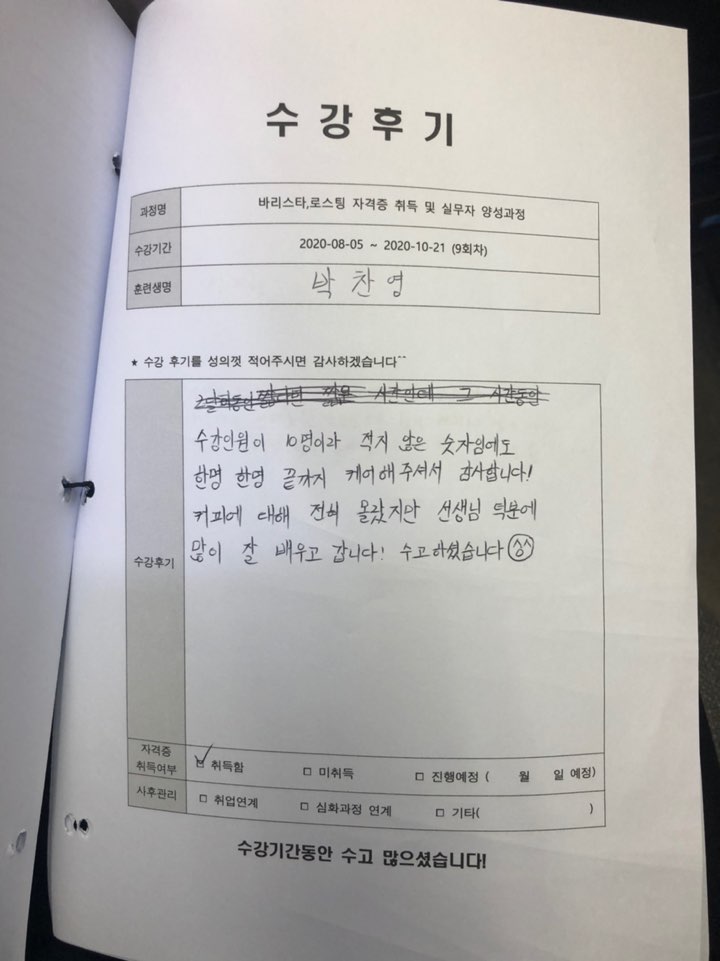 수강후기
과정명 바리스타,로스팅 자격증 취득 및 실무자 양성과정
수강기간 2020-08-05 ~ 2020-10-21 (9회차)
훈련생명 박찬영
★ 수강 후기를 성의껏 적어주시면 감사하겠습니다^^
짧다면 짧은 시간인데 그 시간동안
수강인원이 10명이라 적지 않은 숫자임에도
한명 한명 끝까지 케어해주셔서 감사합니다!
커피에 대해 전혀 몰랐지만 선생님 덕분에
수강후기 많이 잘 배우고 갑니다! 수고하셨습니다
자격증 취득여부 ☑ 취득함 □ 미취득 □ 진행예정 ( 월 일 예정)
사후관리 □ 취업연계 □ 심화과정 연계 □ 기타( )
수강기간동안 수고 많으셨습니다!